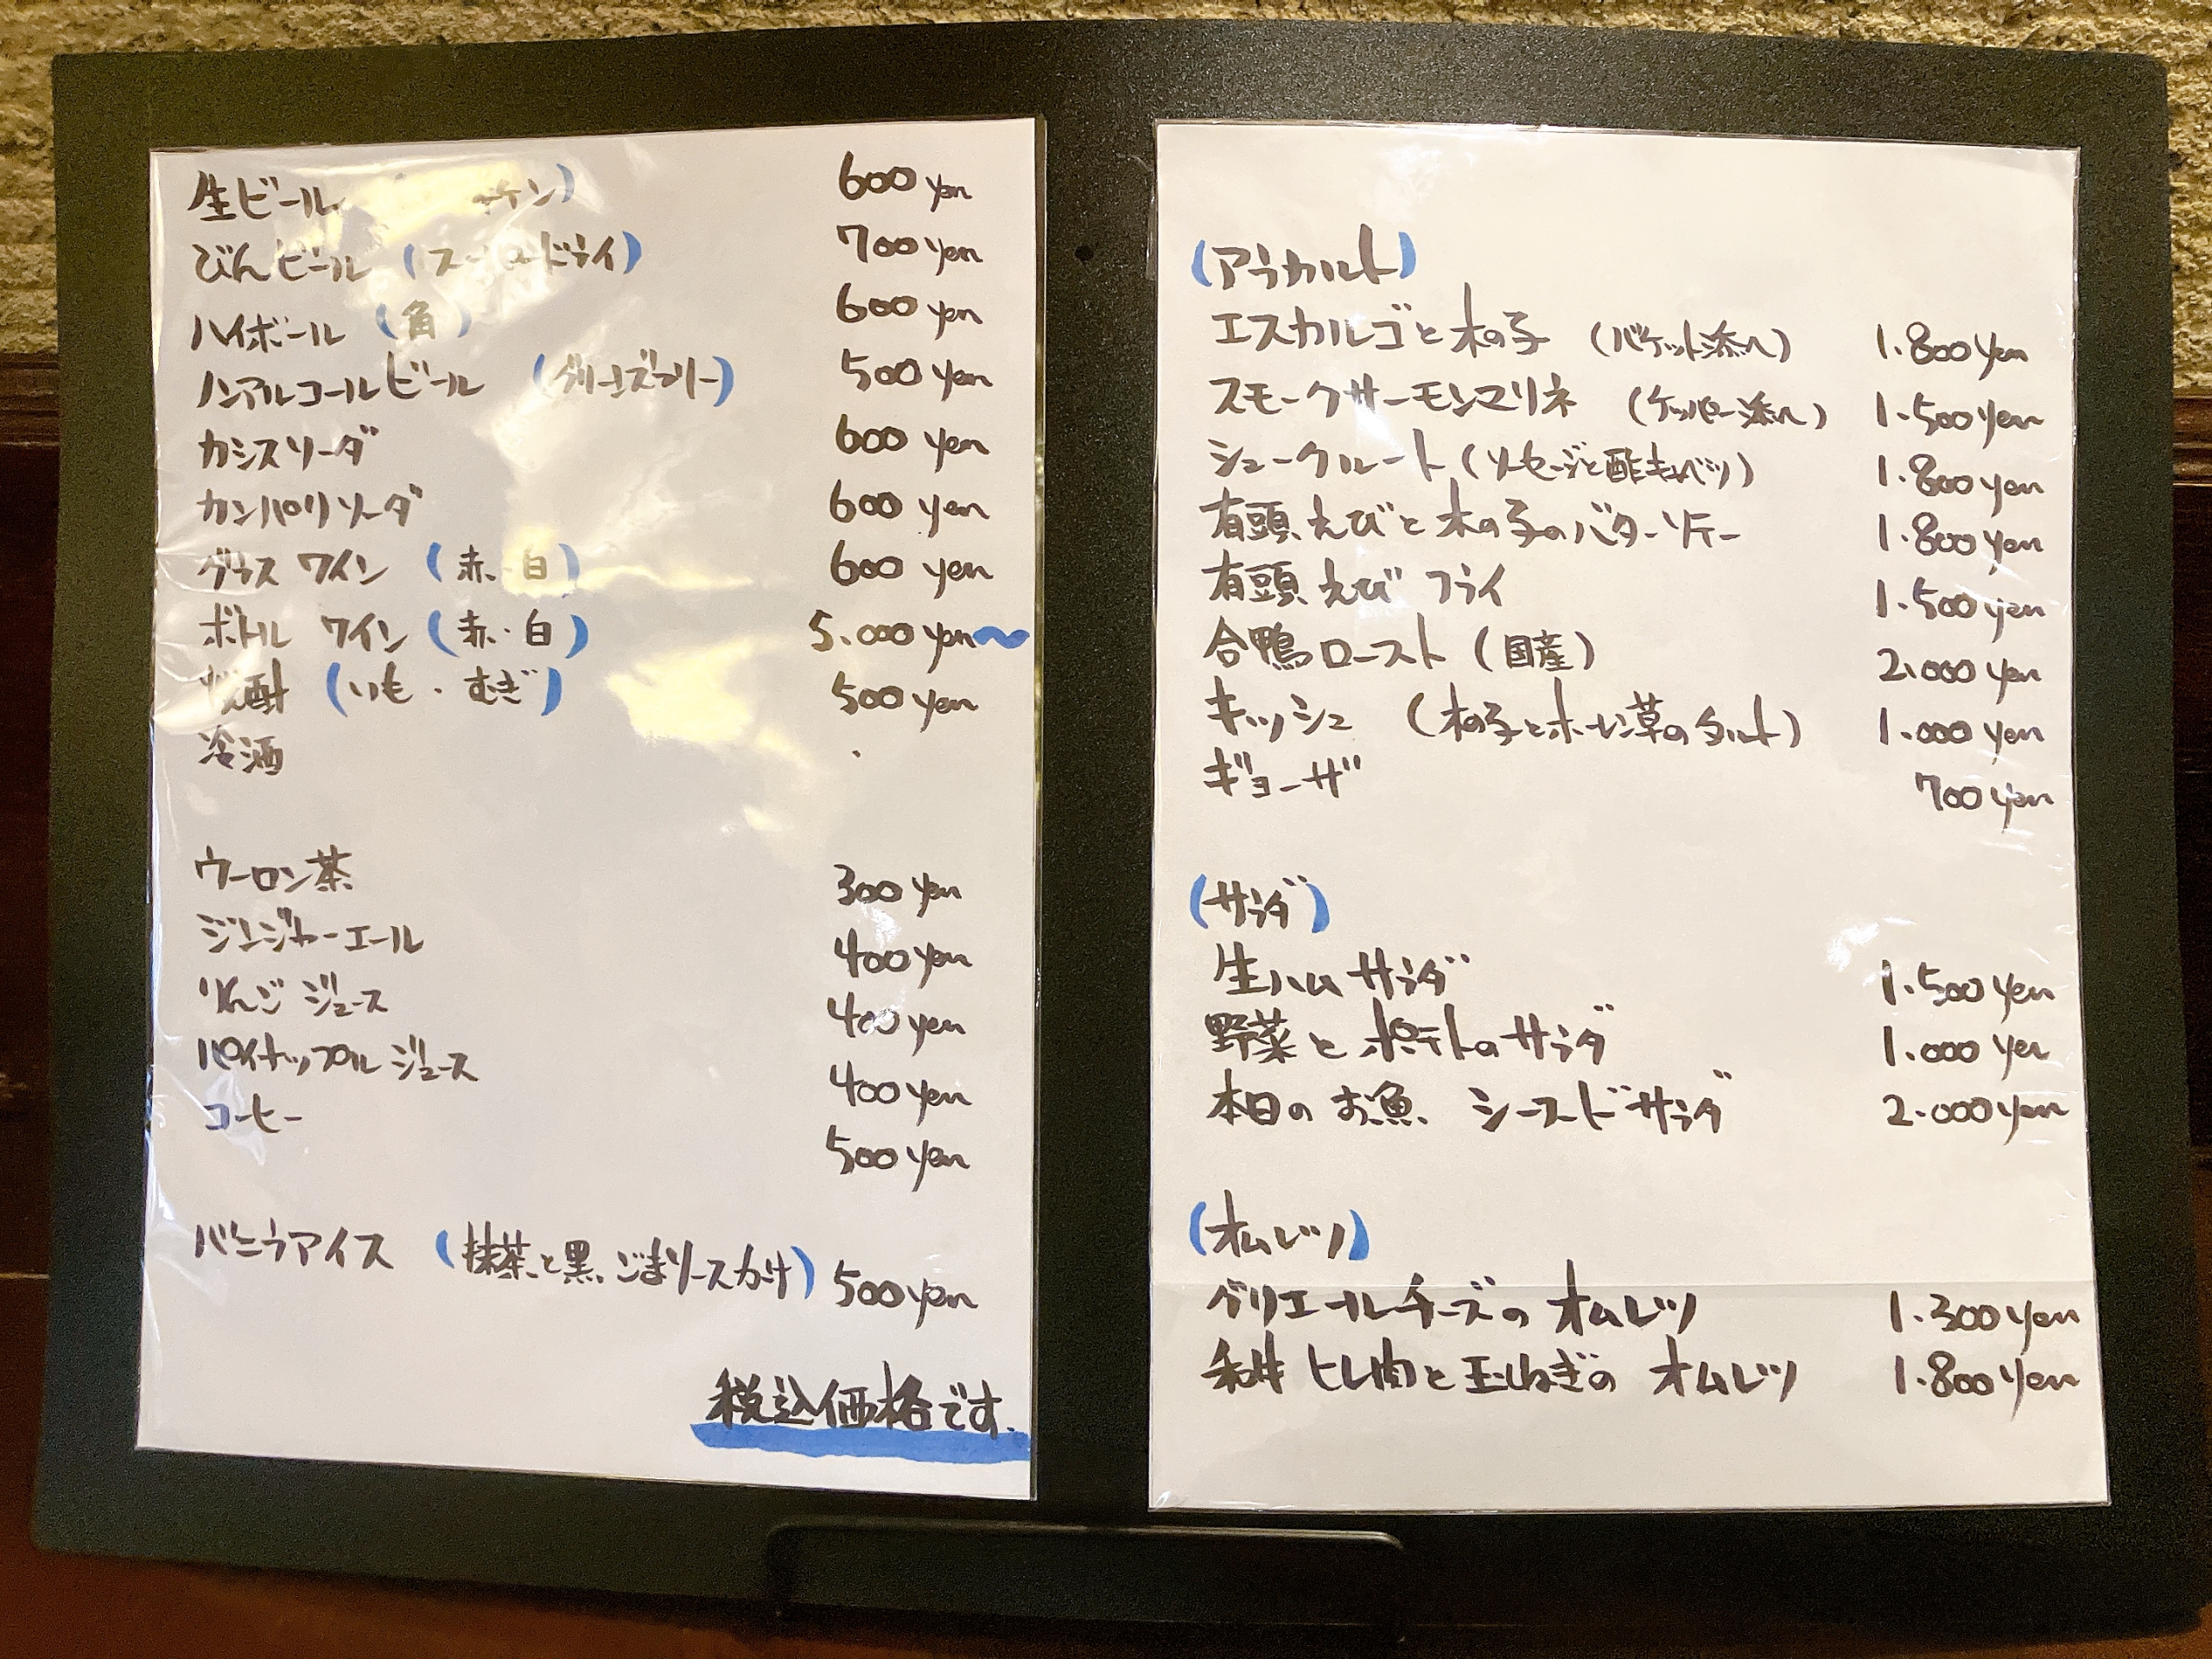 生ビール ケン) 600 yen
びんビール (スーパードライ) 700 yen
ハイボール (角) 600 yen
ノンアルコールビール (グリーンズフリー) 500 yen
カシスソーダ 600 yen
カンパリソーダ 600 yen
グラスワイン (赤・白) 600 yen
ボトルワイン (赤・白) 5.000 yen〜
焼酎 (いも・むぎ) 500 yen
冷酒
ウーロン茶 300 yen
ジンジャーエール 400 yen
りんごジュース 400 yen
パイナップルジュース 400 yen
コーヒー 500 yen
バニラアイス (抹茶と黒ごまソースかけ) 500 yen
税込価格です.
(アラカルト)
エスカルゴと木の子 (バケット添へ) 1.800 yen
スモークサーモンマリネ (ケッパー添へ) 1.500 yen
シュークルート (ソーセージと酢キャベツ) 1.800 yen
有頭えびと木の子のバターソテー 1.800 yen
有頭えびフライ 1.500 yen
合鴨ロースト (国産) 2.000 yen
キッシュ (木の子とホーレン草のタルト) 1.000 yen
ギョーザ 700 yen
(サラダ)
生ハムサラダ 1.500 yen
野菜とポテトのサラダ 1.000 yen
本日のお魚 シーフードサラダ 2.000 yen
(オムレツ)
グリエールチーズのオムレツ 1.300 yen
和牛ヒレ肉と玉ねぎのオムレツ 1.800 yen